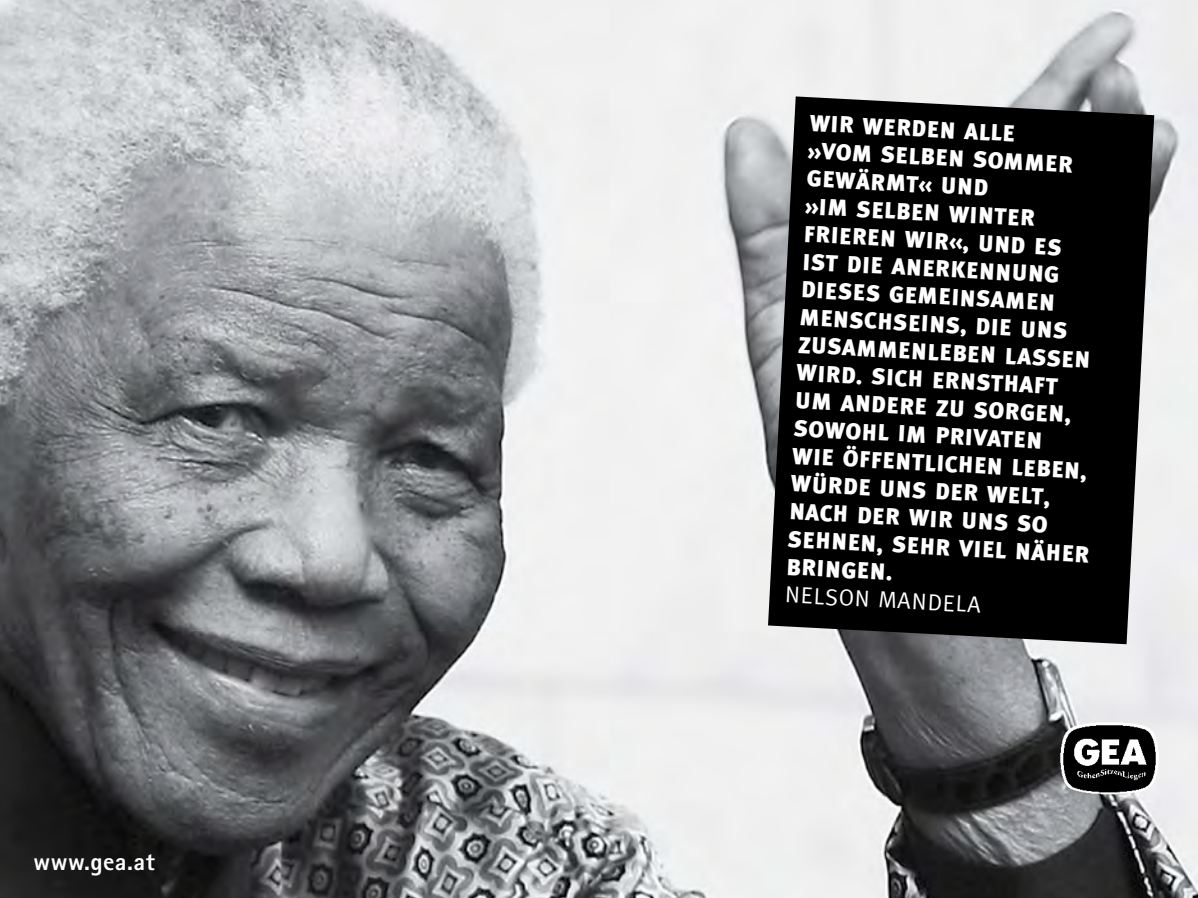 WIR WERDEN ALLE
»VOM SELBEN SOMMER
GEWÄRMT« UND
»IM SELBEN WINTER
FRIEREN WIR«, UND ES
IST DIE ANERKENNUNG
DIESES GEMEINSAMEN
MENSCHSEINS, DIE UNS
ZUSAMMENLEBEN LASSEN
WIRD. SICH ERNSTHAFT
UM ANDERE ZU SORGEN,
SOWOHL IM PRIVATEN
WIE ÖFFENTLICHEN LEBEN,
WÜRDE UNS DER WELT,
NACH DER WIR UNS SO
SEHNEN, SEHR VIEL NÄHER
BRINGEN.
NELSON MANDELA
GEA
GehenSitzenLiegen
www.gea.at